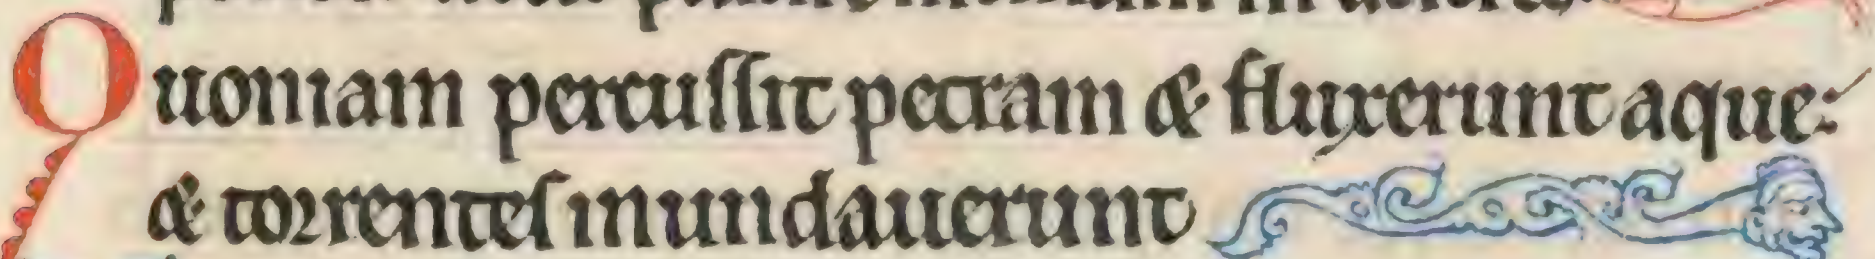 Quoniam percussit petram & fluxerunt aque:
& torrentes inundauerunt